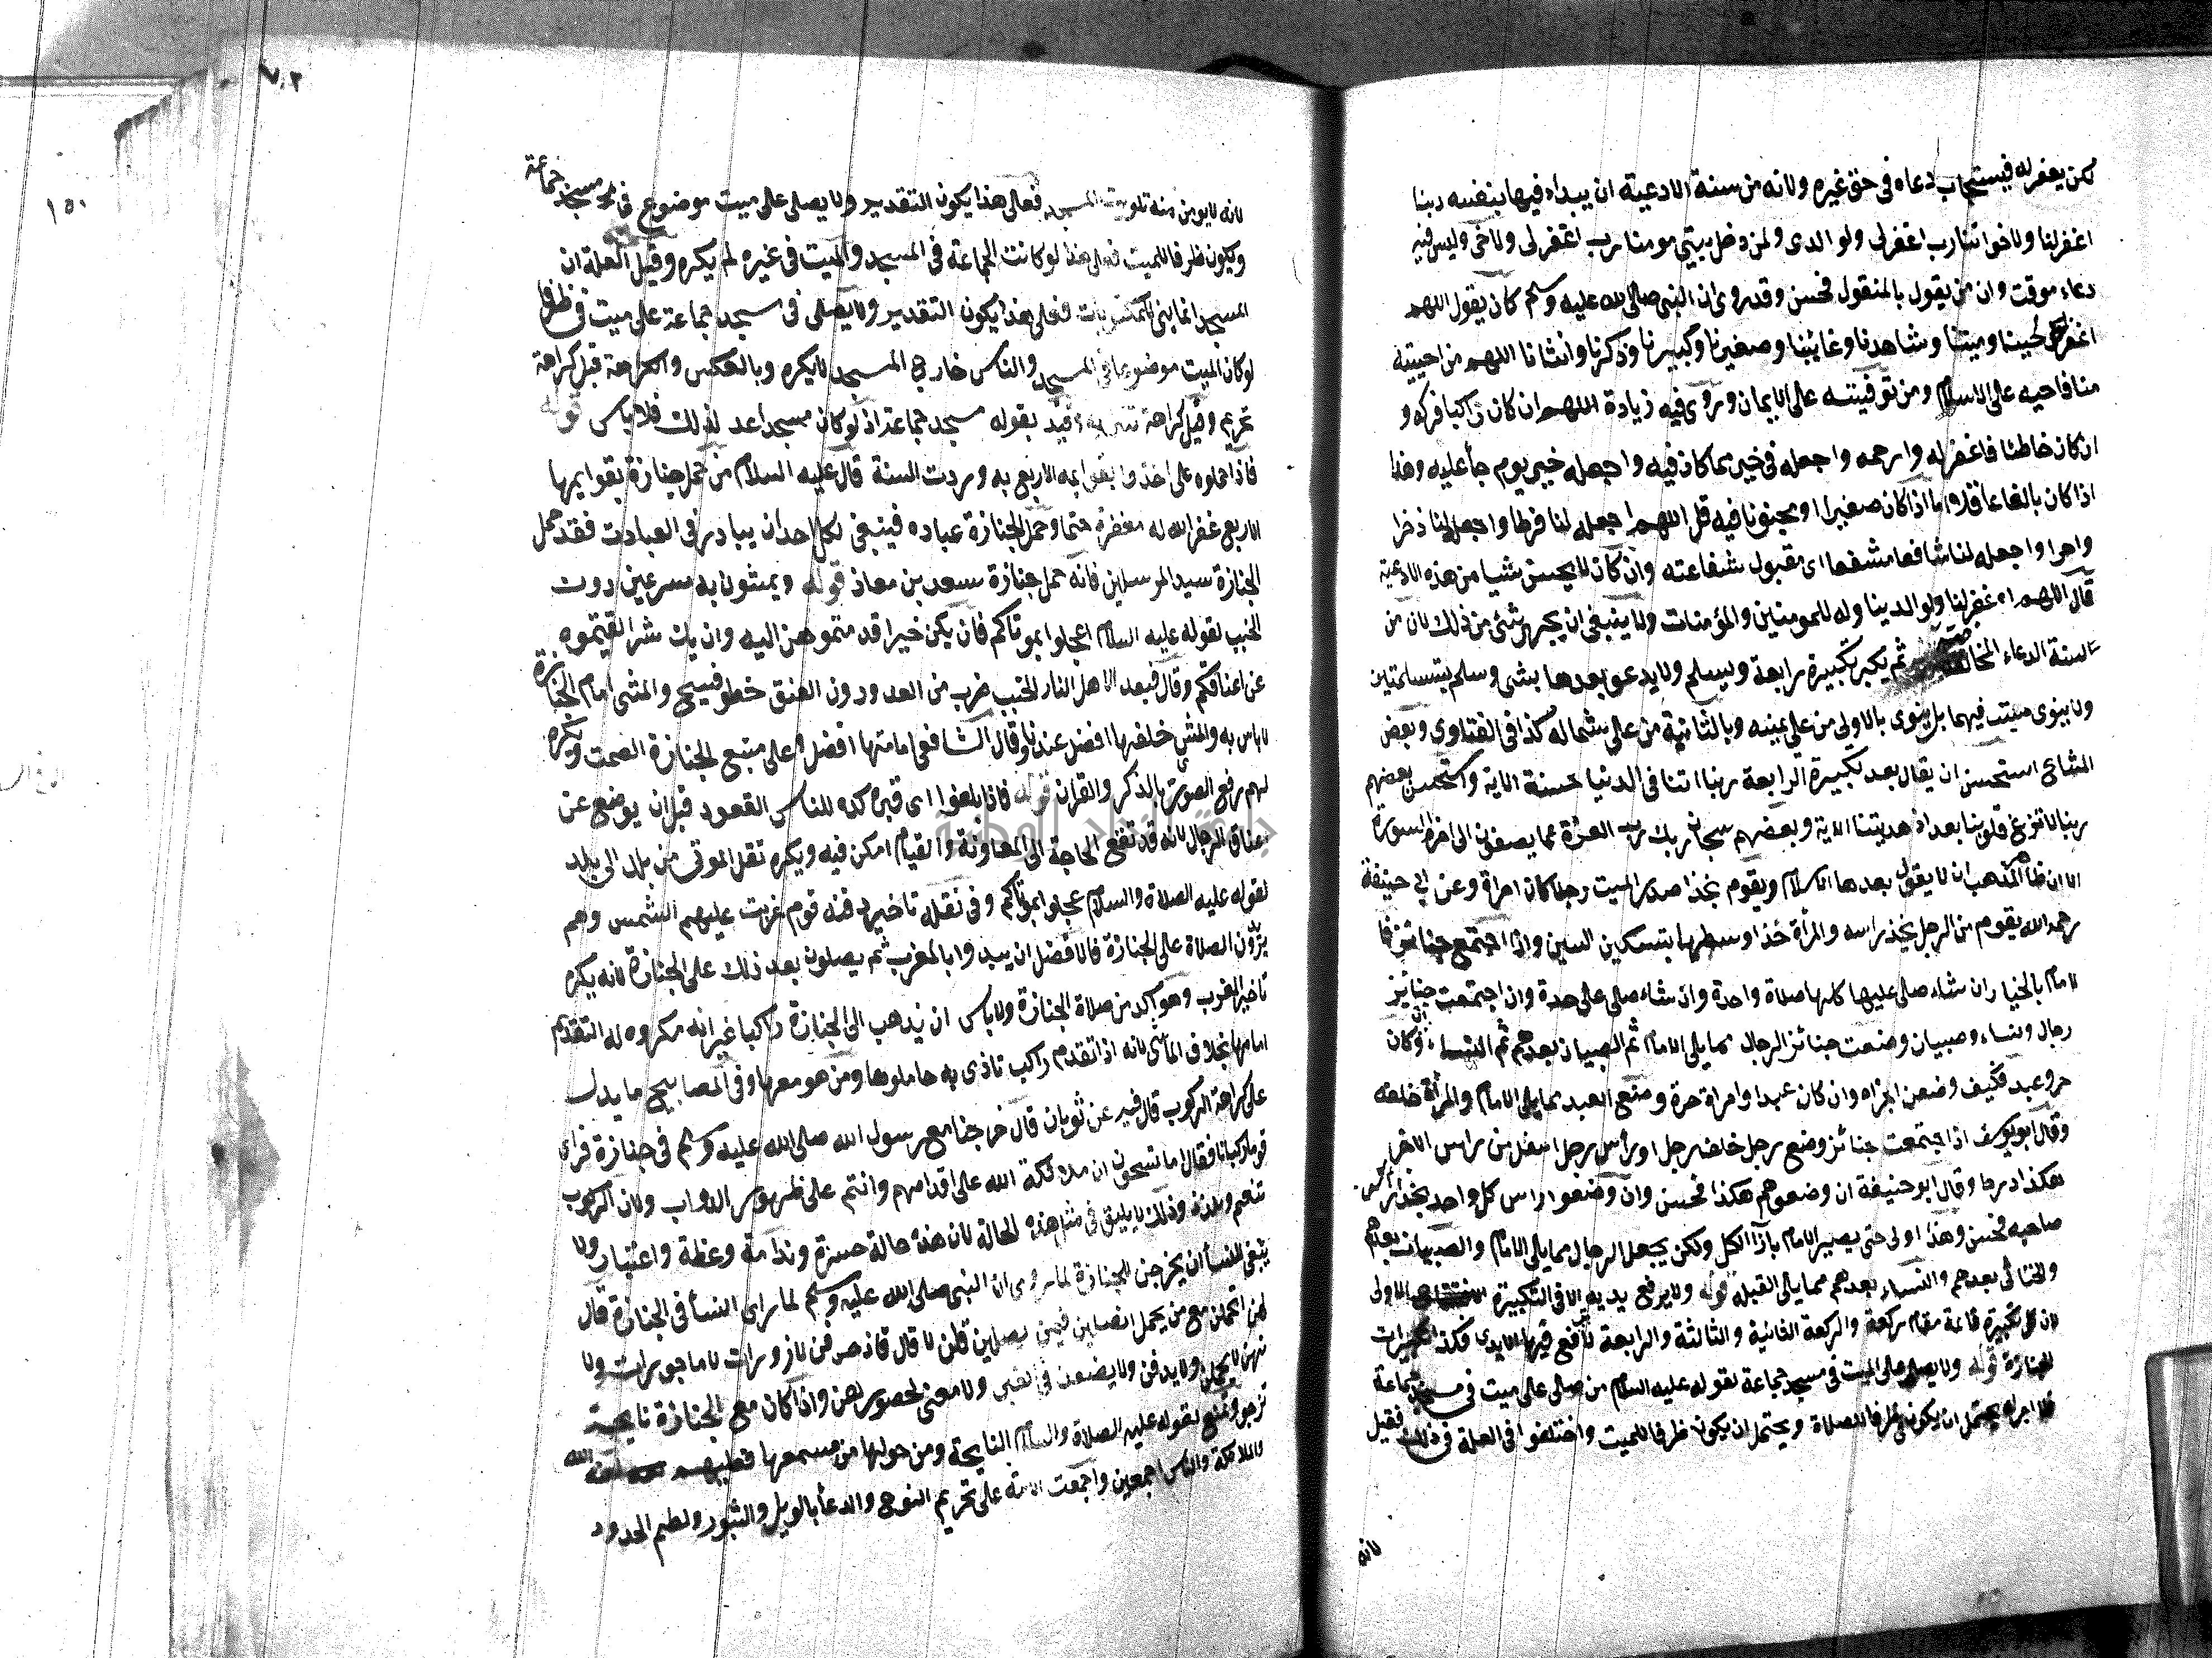 لكن يغفر له فيستجاب دعاه في حق غيره ولانه من سنة الادعية ان يبداء فيها بنفسه ربنا
اغفر لنا ولاخواننا رب اغفر لي ولوالدي ولمن دخل بيتي مومنا رب اغفر لي ولاخي وليس فيه
دعاء موقت وان من يقول بالمنقول فحسن وقد روى ان النبي صلى الله عليه وسلم كان يقول اللهم
اغفر لحينا وميتنا وشاهدنا وغائبنا وصغيرنا وكبيرنا وذكرنا وانثانا اللهم من احييته
منا فاحيه على الاسلام ومن توفيته على الايمان وروى فيه زيادة اللهم ان كان زاكيا فزكه و
ان كان خاطئا فاغفر له وارحمه واجعله في خير مما كان فيه واجعله خير يوم جأ عليه وهذا
اذا كان بالغا عاقلا واما اذا كان صغيرا او مجنونا فيه قل اللهم اجعله لنا فرطا واجعله لنا ذخرا
واجرا واجعله لنا شافعا مشفعا اى مقبول شفاعته وان كان لا يحسن شيا من هذه الادعية
قال اللهم اغفر لنا ولوالدينا وله للمومنين والمؤمنات ولا ينبغي ان يجهر بشئ من ذلك لان من
السنة الدعاء المخافتة ثم يكبر تكبيرة رابعة ويسلم ولا يدعو بعدها بشى وسلم بتسلمتين
ولا ينوى ميتب فيهما بل ينوى بالاولى من على يمينه وبالثانية من على شماله كذا في الفتاوى وبعض
المشائخ استحسن ان يقال بعد تكبيرة الرابعة ربنا اتنا في الدنيا حسنة الاية واستحسن بعضهم
ربنا لا تزغ قلوبنا بعد اذ هديتنا الاية وبعضهم سبحان ربك رب العزة عما يصفون الى اخر السورة
الا ان ظاهر المذهب ان لا يقول بعدها الا السلام ويقوم بحذا صدر الميت رجلا كان امراة وعن ابى حنيفة
رحمه الله يقوم من الرجل بحذ راسه والمرأة حذا وسطها بتسكين السين واذا اجتمع جنائز فا
لامام بالخيار ان شاء صلى عليها كلها صلاة واحدة وان شاء صلى على حدة وان اجتمعت جنائز
رجال ونساء وصبيان وضعت جنائز الرجال مما يلى الامام ثم الصبيان بعدهم ثم النساء ولو كان
حر وعبد فكيف وضعن اجزاه وان كان عبدا وامراة حرة وضع العبد مما يلى الامام والمرأة خلفه
وقال ابو يوسف اذا اجتمعت جنائز وضع رجل خلف رجل او رأس رجل اسفل من راس الاخر
هكذا درجا وقال ابو حنيفة ان وضعوهم هكذا فحسن وان وضعوا راس كل واحد بحذا رأس
صاحبه فحسن وهذا اولى حتى يصير الامام بازآ الكل ولكن يجعل الرجال مما يلى الامام والصبيان بعدهم
والخناثى بعدهم والنساء بعدهم مما يلى القبله قوله ولا يرفع يديه الا في التكبيرة الاولى
لان كل تكبيرة قائمة مقام ركعة والركعة الثانية والثالثة والرابعة لا ترفع فيها الايدى فكذا تكبيرات
الجنازة قوله ولا يصلى على الميت في مسجد جماعة لقوله عليه السلام من صلى على ميت في مسجد جماعة
فلا اجر له يحتمل ان يكون ظرفا للصلاة ويحتمل ان يكون ظرفا للميت واختلفوا في العلة في ذلك فقيل
لانه
٧٠٢
١٥٠
لانه لا يومن منه تلويث المسجد فعلى هذا يكون التقدير ولا يصلى على ميت موضوع في مسجد جماعة
ويكون ظرفا للميت فعلى هذا لو كانت الجماعة في المسجد والميت في غيره لم يكره وقيل العلة ان
المسجد انما بنى للمكتوبات فعلى هذا يكون التقدير ولا يصلى في مسجد جماعة على ميت في ظرفا
لو كان الميت موضوعا في المسجد والناس خارج المسجد لا يكره وبالعكس والكراهة قيل كراهة
تحريم وقيل كراهة تنزيه وقيد بقوله مسجد جماعة اذ لو كان مسجد اعد لذلك فلا باس قوله
فاذا حملوه على اخذوا بقوايمه الاربع به وردت السنة قال عليه السلام من حمل جنازة بقوايمها
الاربع غفر الله له مغفرة حتما وحمل الجنازة عباده فينبغي لكل احد ان يبادر في العبادت فقد حمل
الجنازة سيد المرسلين فانه حمل جنازة سعد بن معاذ قوله ويمشون به مسرعين دون
الخبب لقوله عليه السلام اعجلوا بموتاكم فان يكن خيرا قدمتموهن اليه وان يك شرا القيتموه
عن اعناقكم وقال فبعد الاهل النار الخبب ضرب من العدو دون العنق خطو فسيح والمشى امام الجنازة
لا باس به والمشى خلفها افضل عندنا وقال الشافعى امامها افضل وعلى متبع الجنازة الصمت ويكره
لهم رفع الصوت بالذكر والقران قوله فاذا بلغوا اى قبره كره للناس القعود قبل ان يوضع عن
اعناق الرجال لانه قد تقع الحاجة الى المعاونة والقيام امكن فيه ويكره نقل الموتى من بلد الى بلد
لقوله عليه الصلاة والسلام عجلوا بموتاكم وفى نقله تاخير دفنه قوم غربت عليهم الشمس وهم
يرؤن الصلاة على الجنازة فالافضل ان يبدوا بالمغرب ثم يصلون بعد ذلك على الجنازة لانه يكره
تاخير المغرب وهو اكد من صلاة الجنازة ولا باس ان يذهب الى الجنازة راكبا غير انه مكروه له التقدم
امامها بخلاف الماشى لانه اذا تقدم راكب تاذى به حاملوها ومن هو معها وفى المصابيح ما يدل
على كراهة الركوب قال فيه عن ثوبان قال خرجنا مع رسول الله صلى الله عليه وسلم في جنازة فراى
قوما ركبانا فقال اما تستحون ان ملائكة الله على اقدامهم وانتم على ظهور الدواب ولان الركوب
تنعم وتلذذ وذلك لا يليق في مثل هذه الحالة لان هذه حالة حسرة وندامة وعظة واعتبار ولا
ينبغى للنسا ان يخرجن للجنازة لما روى ان النبى صلى الله عليه وسلم لما راى النسا فى الجنازة قال
لهن اتحملن مع من يحمل اتصلين فيمن يصلين قلن لا قال فانصرفن مازورات لا ماجورات ولا
نهن لا يحملن ولا يدفن ولا يضعن في القبر ولا معنى لحضورهن واذا كان مع الجنازة نايحة
تزجر وتمنع لقوله عليه الصلاة والسلام النايحة ومن حولها من مسمعها فعليهم لعنه الله
والملائكة والناس اجمعين واجمعت الامة على تحريم النوح والدعأ بالويل والثبور ولطم الخدود